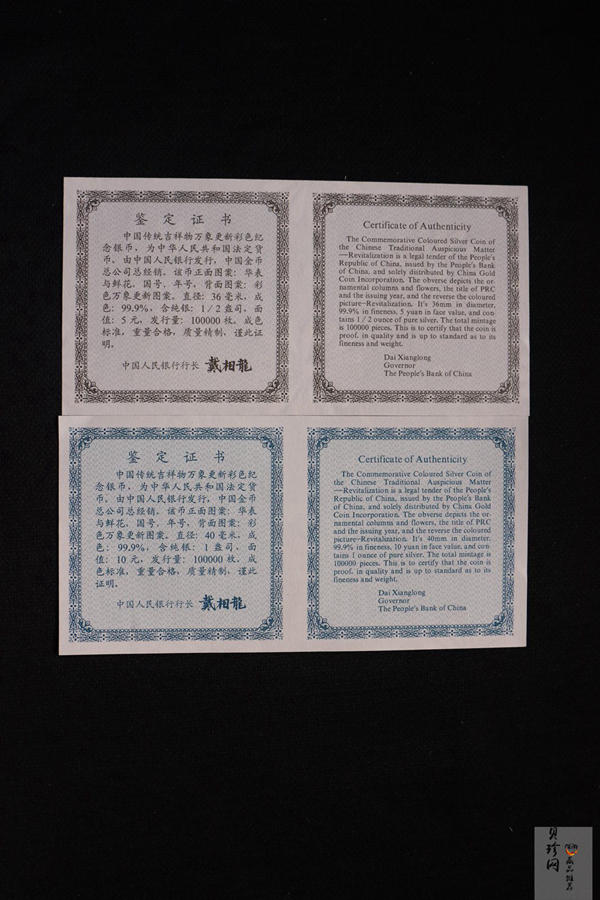 鉴定证书
中国传统吉祥物万象更新彩色纪
念银币，为中华人民共和国法定货
币。由中国人民银行发行，中国金币
总公司总经销。该币正面图案：华表
与鲜花、国号、年号，背面图案：彩
色万象更新图案。直径：36毫米，成
色：99.9%，含纯银：1/2盎司，面
值：5元，发行量：100000枚。成色
标准，重量合格，质量精制，谨此证
明。
中国人民银行行长 戴相龍
Certificate of Authenticity
The Commemorative Coloured Silver Coin of
the Chinese Traditional Auspicious Matter
—Revitalization is a legal tender of the People's
Republic of China, issued by the People's Bank
of China, and solely distributed by China Gold
Coin Incorporation. The obverse depicts the or-
namental columns and flowers, the title of PRC
and the issuing year, and the reverse the coloured
picture—Revitalization. It's 36mm in diameter,
99.9% in fineness, 5 yuan in face value, and con-
tains 1/2 ounce of pure silver. The total mintage
is 100000 pieces. This is to certify that the coin is
proof. in quality and is up to standard as to its
fineness and weight.
Dai Xianglong
Governor
The People's Bank of China
鉴定证书
中国传统吉祥物万象更新彩色纪
念银币，为中华人民共和国法定货
币。由中国人民银行发行，中国金币
总公司总经销。该币正面图案：华表
与鲜花、国号、年号，背面图案：彩
色万象更新图案。直径：40毫米，成
色：99.9%，含纯银：1盎司，面
值：10元，发行量：100000枚。成
色标准，重量合格，质量精制，谨此
证明。
中国人民银行行长 戴相龍
Certificate of Authenticity
The Commemorative Coloured Silver Coin of
the Chinese Traditional Auspicious Matter
—Revitalization is a legal tender of the People's
Republic of China, issued by the People's Bank
of China, and solely distributed by China Gold
Coin Incorporation. The obverse depicts the or-
namental columns and flowers, the title of PRC
and the issuing year, and the reverse the coloured
picture—Revitalization. It's 40mm in diameter,
99.9% in fineness, 10 yuan in face value, and con-
tains 1 ounce of pure silver. The total mintage is
100000 pieces. This is to certify that the coin is
proof. in quality and is up to standard as to its
fineness and weight.
Dai Xianglong
Governor
The People's Bank of China
贝珍网